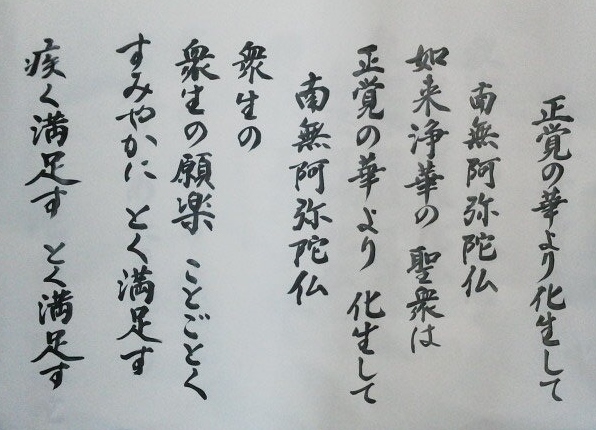 正覚の華より化生して
南無阿弥陀仏
如来浄華の 聖衆は
正覚の華より 化生して
南無阿弥陀仏
衆生の
衆生の願楽 ことごとく
すみやかに とく満足す
疾く満足す とく満足す